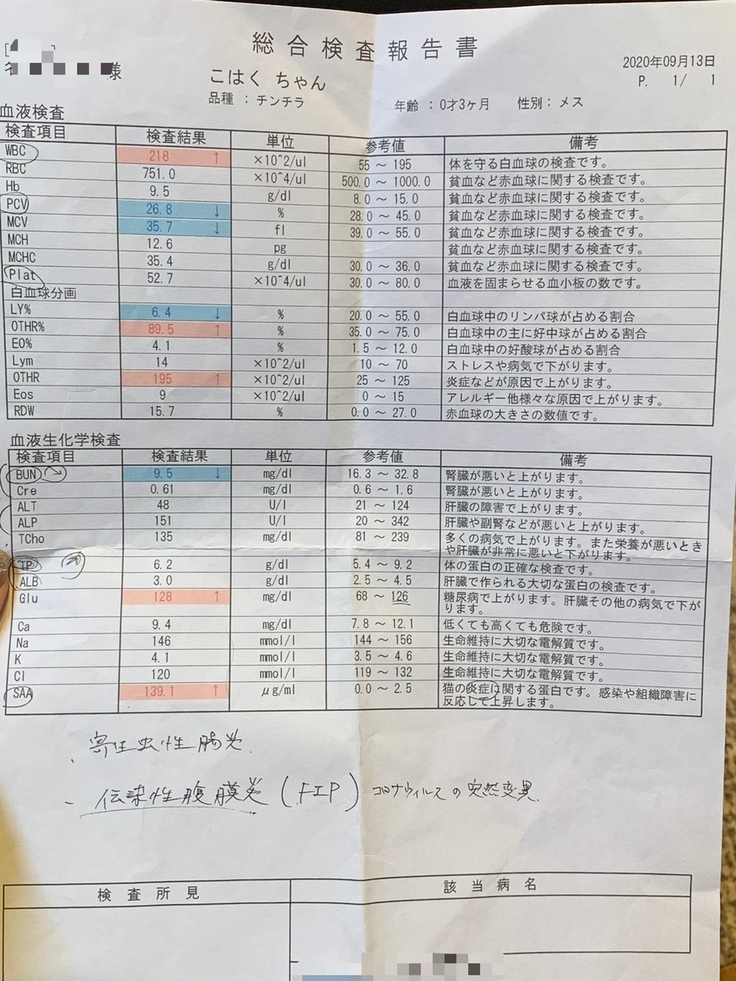 総合検査報告書
2020年09月13日
P. 1/ 1
様
こはく ちゃん
品種 : チンチラ 年齢 : 0才3ヶ月 性別 : メス
血液検査
検査項目 検査結果 単位 参考値 備考
WBC 218 ↑ ×10^2/ul 55 ～ 195 体を守る白血球の検査です。
RBC 751.0 ×10^4/ul 500.0 ～ 1000.0 貧血など赤血球に関する検査です。
Hb 9.5 g/dl 8.0 ～ 15.0 貧血など赤血球に関する検査です。
PCV 26.8 ↓ % 28.0 ～ 45.0 貧血など赤血球に関する検査です。
MCV 35.7 ↓ fl 39.0 ～ 55.0 貧血など赤血球に関する検査です。
MCH 12.6 pg 貧血など赤血球に関する検査です。
MCHC 35.4 g/dl 30.0 ～ 36.0 貧血など赤血球に関する検査です。
Plat 52.7 ×10^4/ul 30.0 ～ 80.0 血液を固まらせる血小板の数です。
白血球分画
LY% 6.4 ↓ % 20.0 ～ 55.0 白血球中のリンパ球が占める割合
OTHR% 89.5 ↑ % 35.0 ～ 75.0 白血球中の主に好中球が占める割合
EO% 4.1 % 1.5 ～ 12.0 白血球中の好酸球が占める割合
Lym 14 ×10^2/ul 10 ～ 70 ストレスや病気で下がります。
OTHR 195 ↑ ×10^2/ul 25 ～ 125 炎症などが原因で上がります。
Eos 9 ×10^2/ul 0 ～ 15 アレルギー他様々な原因で上がります。
RDW 15.7 % 0.0 ～ 27.0 赤血球の大きさの数値です。
血液生化学検査
検査項目 検査結果 単位 参考値 備考
BUN 9.5 ↓ mg/dl 16.3 ～ 32.8 腎臓が悪いと上がります。
Cre 0.61 mg/dl 0.6 ～ 1.6 腎臓が悪いと上がります。
ALT 48 U/l 21 ～ 124 肝臓の障害で上がります。
ALP 151 U/l 20 ～ 342 肝臓や副腎などが悪いと上がります。
TCho 135 mg/dl 81 ～ 239 多くの病気で上がります。また栄養が悪いとき
や肝臓が非常に悪いと下がります。
TP 6.2 g/dl 5.4 ～ 9.2 体の蛋白の正確な検査です。
ALB 3.0 g/dl 2.5 ～ 4.5 肝臓で作られる大切な蛋白の検査です。
Glu 128 ↑ mg/dl 68 ～ 126 糖尿病で上がります。肝臓その他の病気で下が
ります。
Ca 9.4 mg/dl 7.8 ～ 12.1 低くても高くても危険です。
Na 146 mmol/l 144 ～ 156 生命維持に大切な電解質です。
K 4.1 mmol/l 3.5 ～ 4.6 生命維持に大切な電解質です。
Cl 120 mmol/l 119 ～ 132 生命維持に大切な電解質です。
SAA 139.1 ↑ μg/ml 0.0 ～ 2.5 猫の炎症に関する蛋白です。感染や組織障害に
反応して上昇します。
・寄生虫性腸炎.
- 伝染性腹膜炎 (FIP) コロナウィルスの突然変異.
検査所見 該当病名